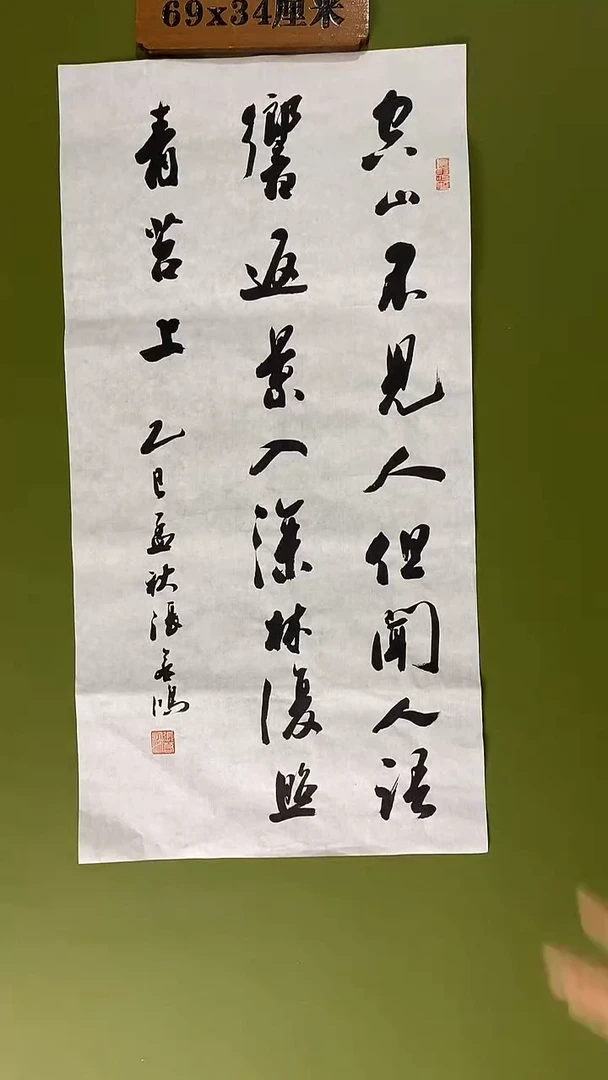 69x34厘米
空山不見人但聞人語
響返景入深林復照
青苔上 乙巳孟秋張